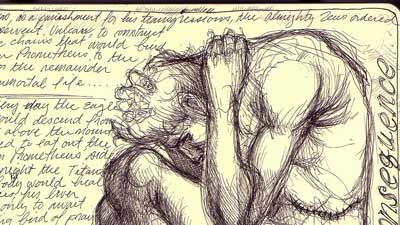 as a punishment for his transgressions, the almighty Zeus ordered
servent, Vulcan, to construct
chains that would bind
Prometheus, to the
the remainder
mmortal life....
ery day the eagle
ould descend from
above the mount
ed to eat out the
Prometheus side
night the Titan
ody would heal
liver
only to await
ng bird of prey
onsequence